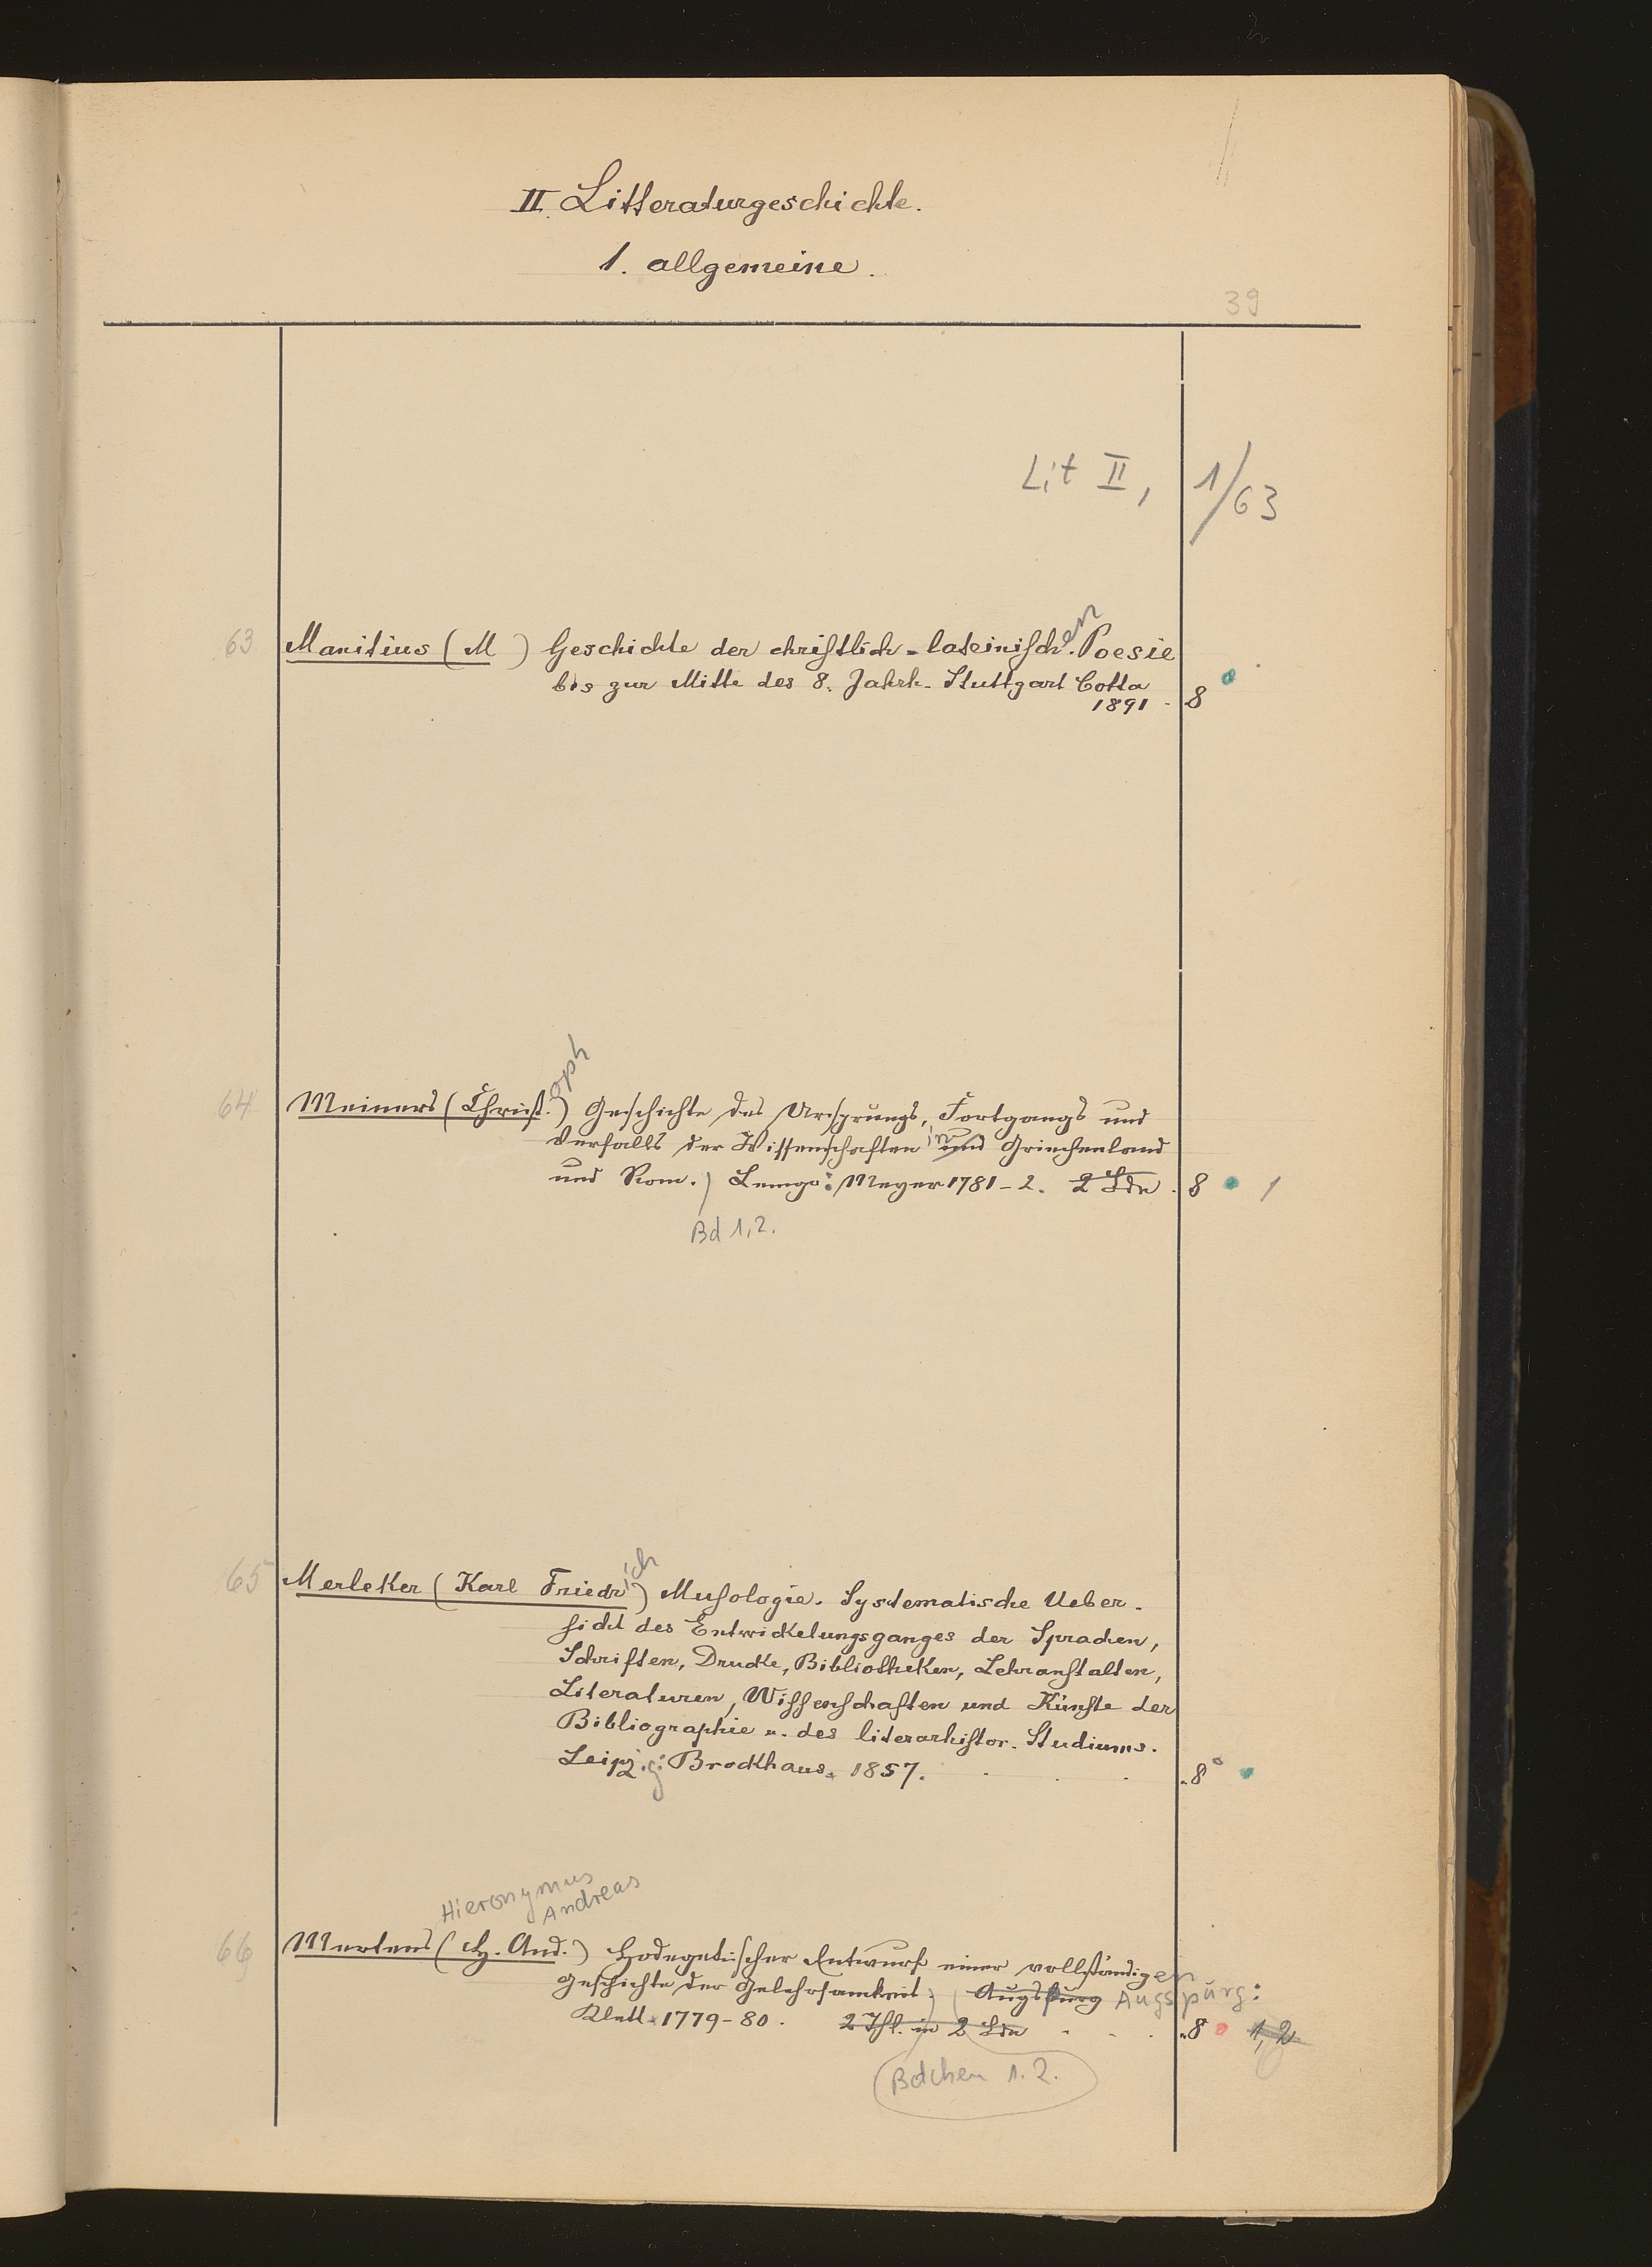 II. Litteraturgeschichte.
1. allgemeine.
39
Lit II, 1/63
63 Manitius (M ) Geschichte der christlich-lateinisch.en Poesie
bis zur Mitte des 8. Jahrh. Stuttgart Cotta
1891 - 8°
oph
64 Meiners (Christ.) Geschichte des Ursprungs, Fortgangs und
Verfalls der Wissenschaften in und Griechenland
und Rom. ) Lemgo: Meyer 1781-2. 2 Bde. 8 1
Bd 1,2.
65 Merleker (Karl Friedrich) Musologie. Systematische Ueber-
sicht des Entwickelungsganges der Sprachen,
Schriften, Drucke, Bibliotheken, Lehranstalten,
Literaturen, Wissenschaften und Künste der
Bibliographie u. des literarhistor. Studiums.
Leipzig: Brockhaus. 1857. . . . 8°
Hieronymus
Andreas
66 Mertens (H. And.) Hodegetischer Entwurf einer vollständigen
Geschichte der Gelehrsamkeit. ) ( Augsburg Augspurg:
Klett. 1779-80. 2 Thl. in 2 Bde . . . 8 1, 2
Bdchen 1.2.